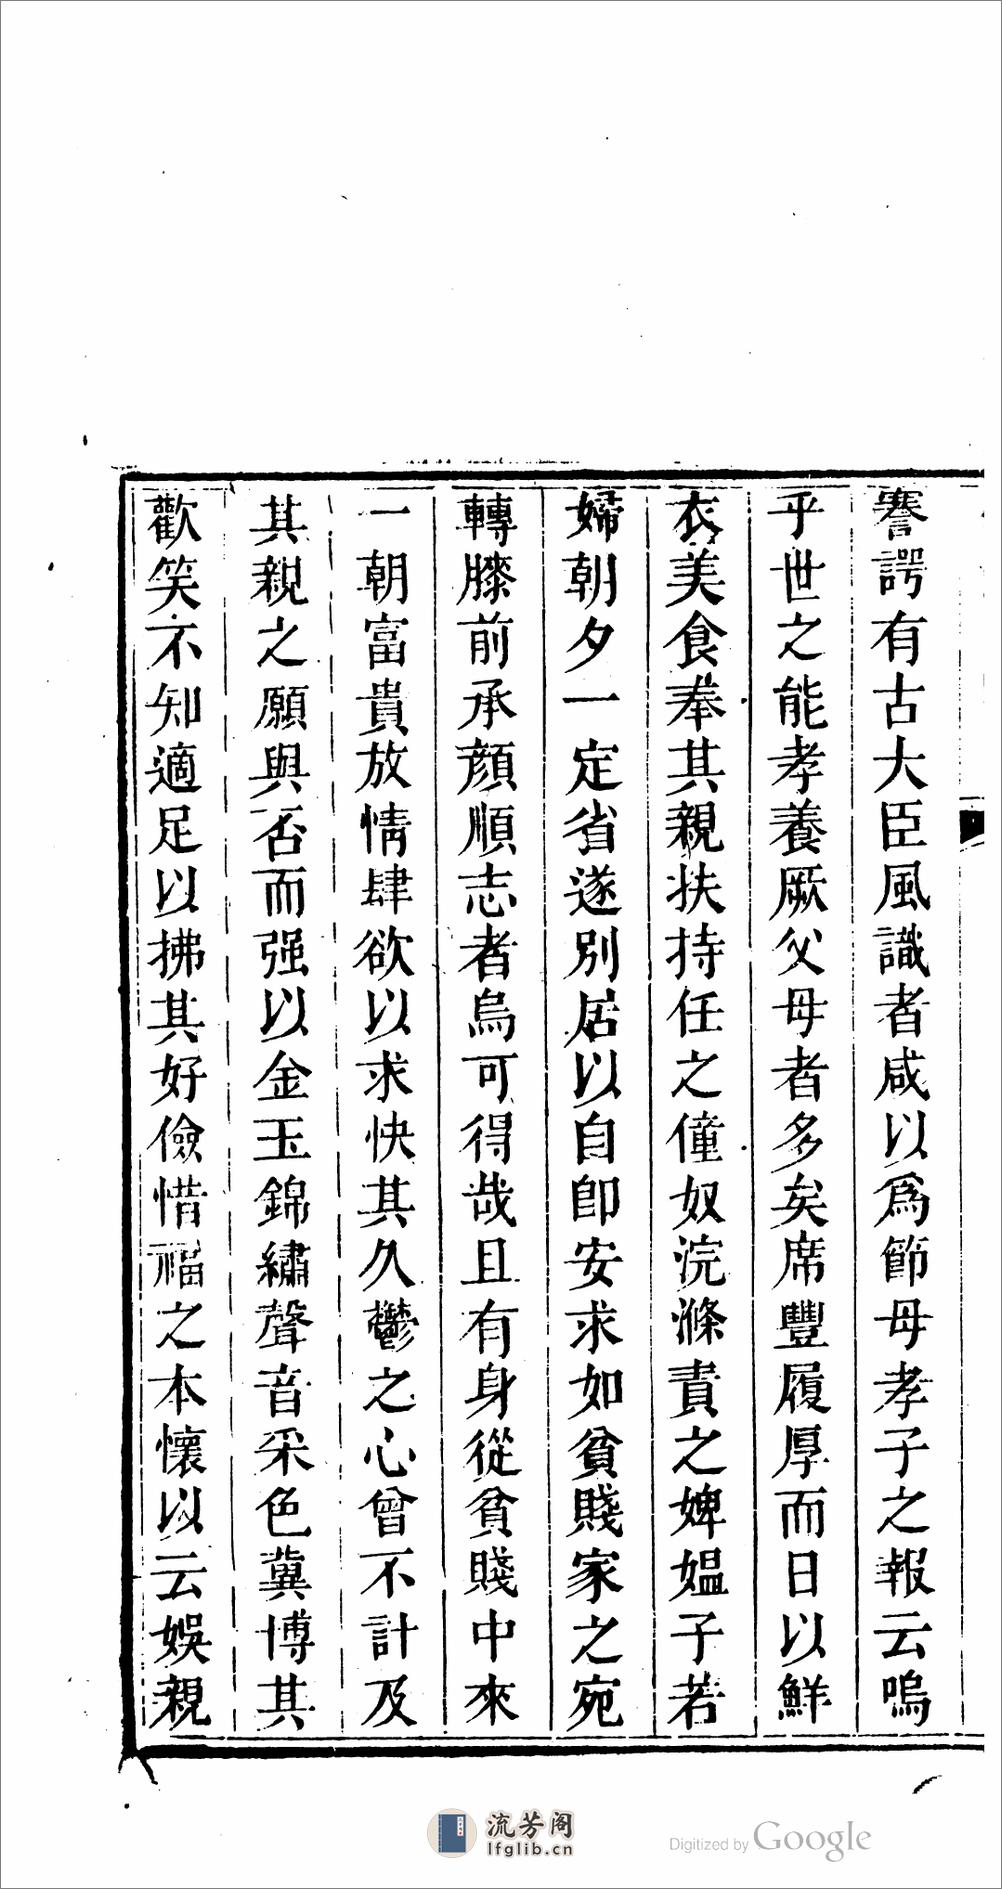 謇諤有古大臣風識者咸以爲節母孝子之報云嗚
乎世之能孝養厥父母者多矣席豐履厚而日以鮮
衣美食奉其親扶持任之僮奴浣滌責之婢媼子若
婦朝夕一定省遂別居以自卽安求如貧賤家之宛
轉膝前承顏順志者烏可得哉且有身從貧賤中來
一朝富貴放情肆欲以求快其久鬱之心曾不計及
其親之願與否而强以金玉錦繡聲音采色冀博其
歡笑不知適足以拂其好儉惜福之本懷以云娛親
流芳阁
lfglib.cn
Digitized by Google